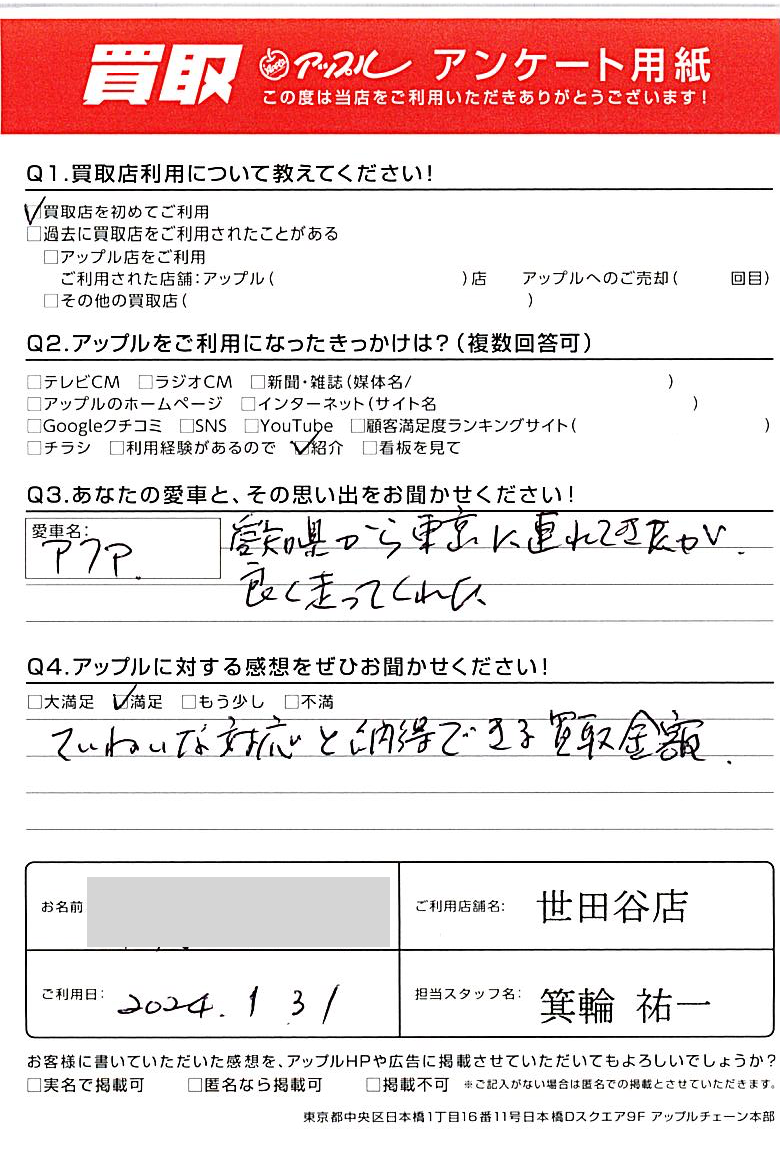 買取 アップル アンケート用紙
この度は当店をご利用いただきありがとうございます！
Q1.買取店利用について教えてください！
☑買取店を初めてご利用
□過去に買取店をご利用されたことがある
□アップル店をご利用
ご利用された店舗：アップル（ ）店 アップルへのご売却（ 回目）
□その他の買取店（ ）
Q2.アップルをご利用になったきっかけは？（複数回答可）
□テレビCM □ラジオCM □新聞・雑誌（媒体名/ ）
□アップルのホームページ □インターネット（サイト名 ）
□Googleクチコミ □SNS □YouTube □顧客満足度ランキングサイト（ ）
□チラシ □利用経験があるので ☑紹介 □看板を見て
Q3.あなたの愛車と、その思い出をお聞かせください！
愛車名：
アクア.
愛知県から東京に連れてきたが.
良く走ってくれた
Q4.アップルに対する感想をぜひお聞かせください！
□大満足 ☑満足 □もう少し □不満
ていねいな対応と納得できる買取金額.
お名前
ご利用店舗名： 世田谷店
ご利用日： 2024. 1 31
担当スタッフ名： 箕輪 祐一
お客様に書いていただいた感想を、アップルHPや広告に掲載させていただいてもよろしいでしょうか？
□実名で掲載可 □匿名なら掲載可 □掲載不可 ※ご記入がない場合は匿名での掲載とさせていただきます。
東京都中央区日本橋1丁目16番11号日本橋Dスクエア9F アップルチェーン本部